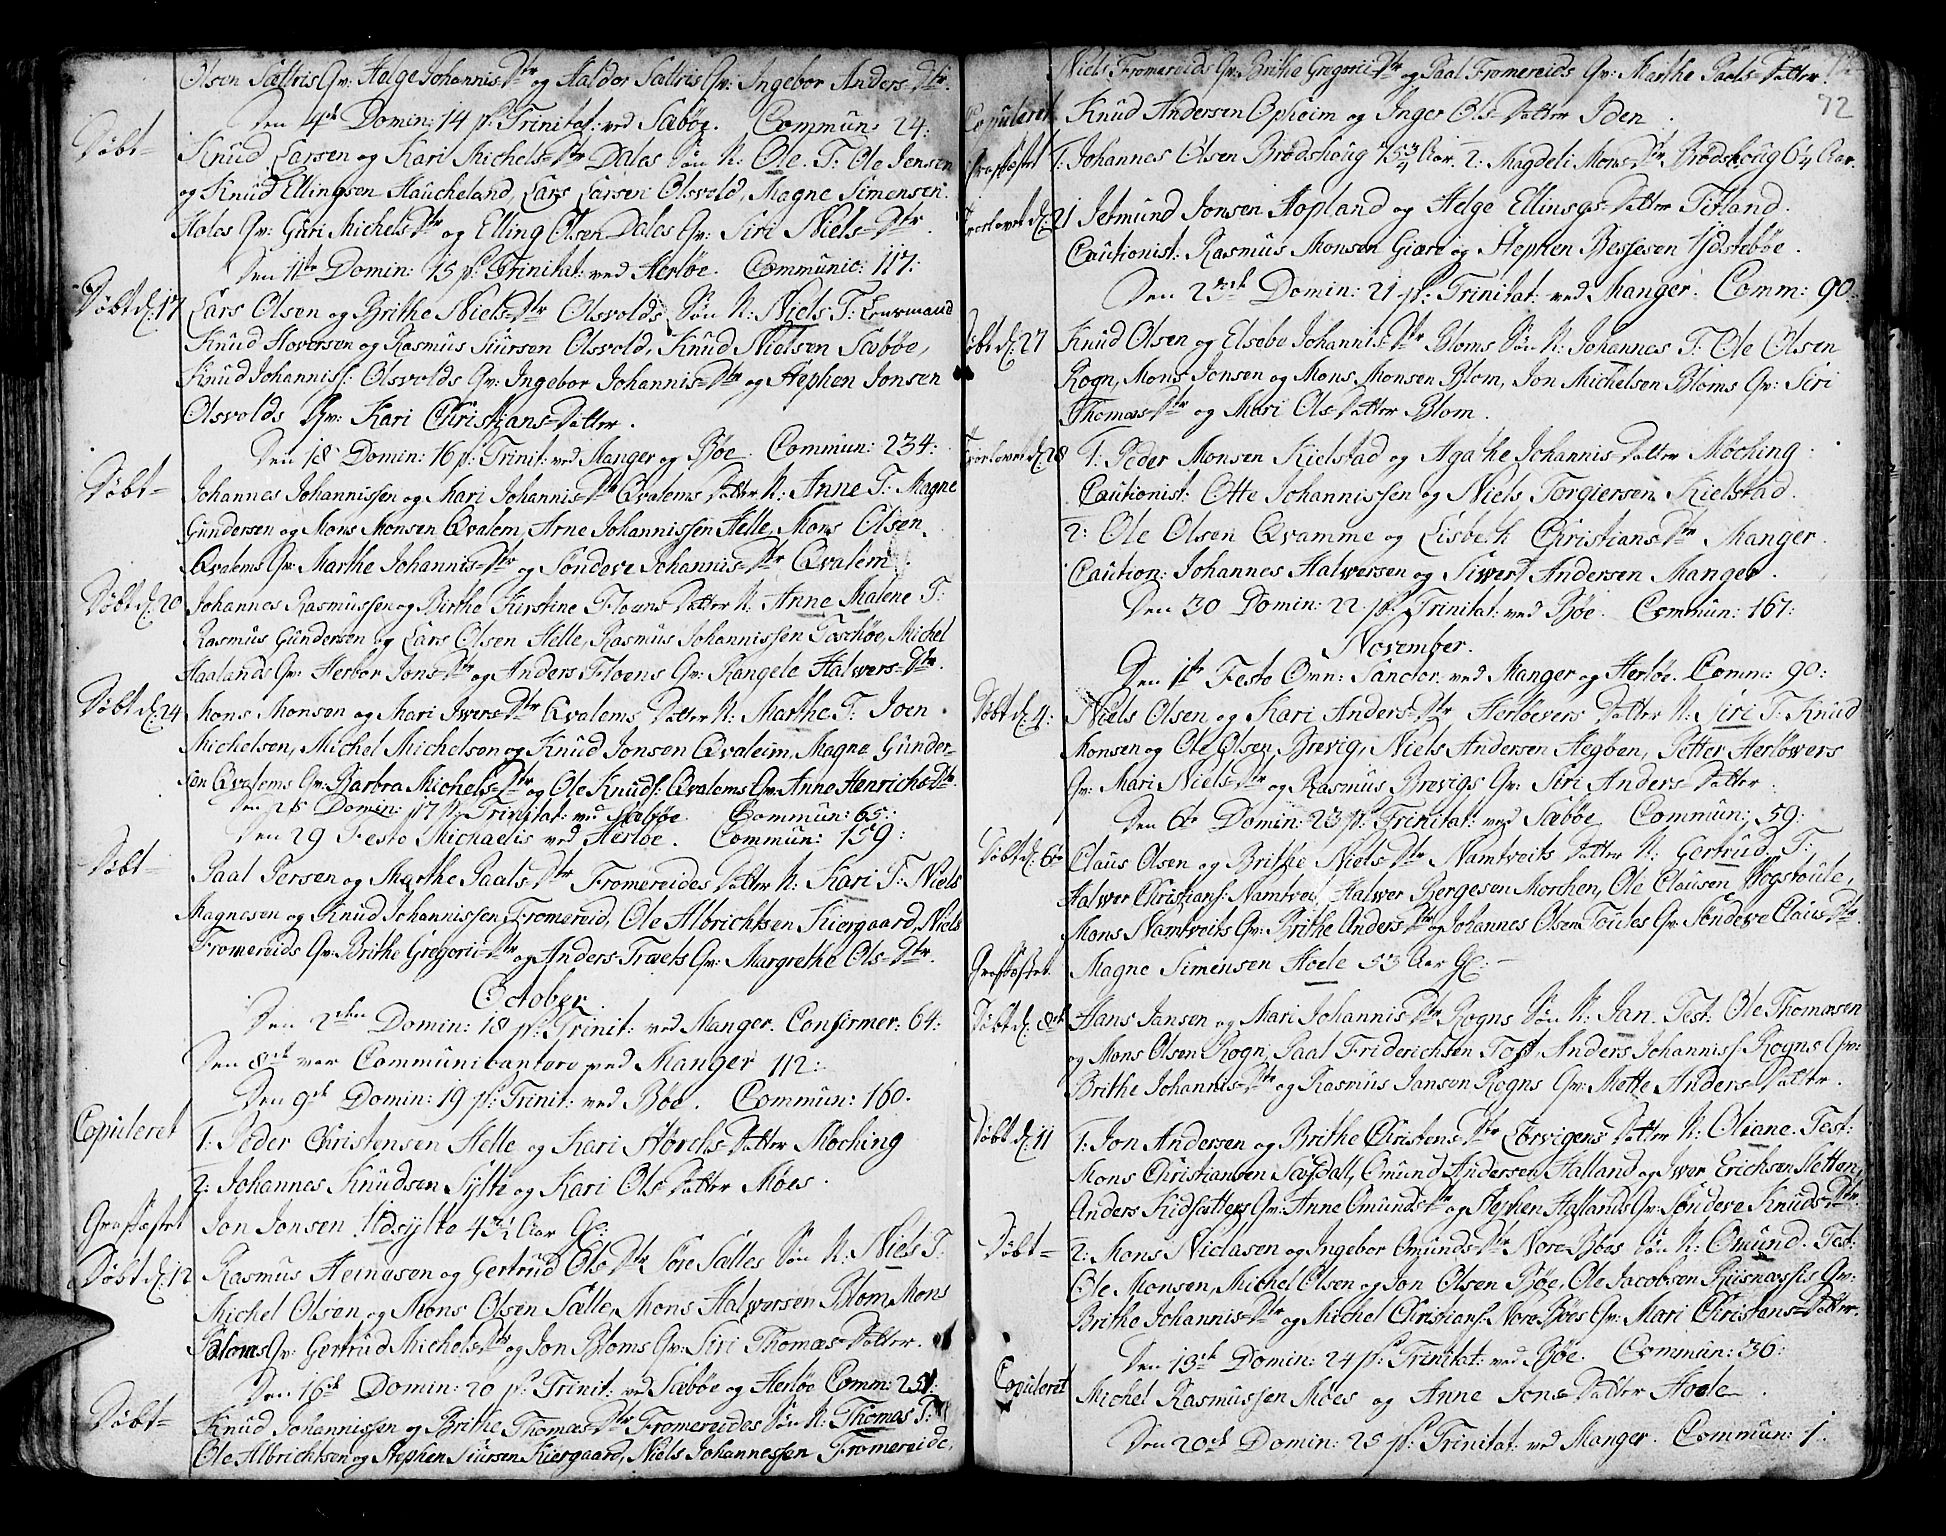 Olsen Sættris Qv: Helge Johannis Dtr og Haldor Sættris Qv: Ingebor Anders Dtr.
Den 4de Domin: 14 p: Trinitat: ved Sæbøe. Commun: 24:
Døbt= Knud Larsen og Kari Michels Dtr Dales Søn N: Ole. T: Ole Jensen
og Knud Ellingsen Haucheland, Lars Larsen Olsvold, Magne Simensen
Holes Qv: Guri Michels Dtr og Elling Olsen Dales Qv: Siri Niels Dtr.
Den 11te Domin: 15 p: Trinitat: ved Herløe. Communic: 117:
Døbt d: 17 Lars Olsen og Brithe Niels Dtr Olsvolds Søn N: Niels T: Lensmand
Knud Hoversen og Rasmus Siursen Olsvold, Knud Nielsen Sæbøe,
Knud Johanniss: Olsvolds Qv: Ingebor Johannis Dtr og Stephen Jonsen
Olsvolds Qv: Kari Christians Datter.
Den 18 Domin: 16 p: Trinit: ved Manger og Bøe. Commun: 234:
Døbt= Johannes Johannissen og Mari Johannis Dtr Qvalems Datter N: Anne T: Magne
Gundersen og Mons Monsen Qvalem, Arne Johannissen Helle, Mons Olsen
Qvalems Qv: Marthe Johannis Dtr og Søndeve Johannis Dtr Qvalem.
Døbt d: 20 Johannes Rasmussen og Birthe Kirstine Floens Datter N: Anne Malene T:
Rasmus Gundersen og Lars Olsen Helle, Rasmus Johannissen Toschøe, Michel
Haalands Qv: Herbor Jons Dtr og Anders Floens Qv: Rangele Halvers Dtr.
Døbt d: 24 Mons Monsen og Mari Ivers Dtr Qvalems Datter N: Marthe T: Joen
Michelsen, Michel Michelsen og Knud Jonsen Qvaleim, Magne Gunder-
sen Qvalems Qv: Barbra Michels Dtr og Ole Knuds: Qvalems Qv: Anne Henrichs Dtr.
Den 25 Domin: 17 p: Trinitat: ved Sæbøe. Commun: 65:
Den 29 Festo Michaelis ved Herløe. Commun: 159:
Døbt= Paal Persen og Marthe Paals Dtr Fromereides Datter N: Kari T: Niels
Magnesen og Knud Johannissen Fromereid, Ole Albrichtsen Kiergaard, Niels
Fromereids Qv: Brithe Gregorii Dtr og Anders Træets Qv: Margrethe Ols Dtr.
October.
Den 2den Domin: 18 p: Trinit: ved Manger. Confirmer: 64:
Den 8de var Communicantere ved Manger 112:
Den 9de Domin: 19 p: Trinit: ved Bøe. Commun: 160.
Copuleret 1: Peder Christensen Helle og Kari Størchs Datter Møching
2: Johannes Knudsen Sylte og Kari Ols Datter Møes.
Graffæstet Jon Jonsen Udsylte 4 3/4 Aar Gl:
Døbt d: 12 Rasmus Heinesen og Gertrud Ols Dtr Søre Sælles Søn N: Niels T:
Michel Olsen og Mons Olsen Sælle, Mons Halversen Blom, Mons
Bloms Qv: Gertrud Michels Dtr og Jon Bloms Qv: Siri Thomæs Datter.
Den 16de Domin: 20 p: Trinit: ved Sæbøe og Herløe Comm: 251:
Døbt= Knud Johannissen og Brithe Thomæs Dtr Fromereides Søn N: Thomas T:
Ole Albrichtsen og Stephen Siursen Kiergaard, Niels Johannessen Fromereide,
72
Niels Fromereids Qv: Brithe Gregorii Dtr og Paal Fromereids Qv: Marthe Paals Datter.
Copuleret Knud Andersen Opheim og Inger Ols Datter Iden.
Graffæstet 1: Johannes Olsen Brødshoug 15 3/4 Aar, 2: Magdeli Mons Dtr Brødshoug 6 1/4 Aar.
Trorlovet d: 21 Jetmund Jonsen Hopland og Helge Ellings Datter Titland.
Cautionist: Rasmus Monsen Giære og Stephen Bessesen Udstebøe.
Den 23de Domin: 21 p: Trinitat: ved Manger: Comm: 90:
Døbt d: 27 Knud Olsen og Elsebe Johannis Dtr Bloms Søn N: Johannes T: Ole Olsen
Rogn, Mons Jonsen og Mons Monsen Blom, Jon Michelsen Bloms Qv: Siri
Thomæs Dtr og Mari Ols Datter Blom.
Trorlovet d: 28 1: Peder Monsen Kielstad og Agathe Johannis Datter Møching:
Cautionist: Otte Johannissen og Niels Torgiersen Kielstad.
2: Ole Olsen Qvamme og Lisbeth Christians Dtr Manger.
Caution: Johannes Halversen og Siwert Andersen Manger.
Den 30 Domin: 22 p: Trinitat: ved Bøe. Commun: 167:
November.
Den 1te Festo Omn: Sanctor: ved Manger og Herløe. Comm: 90:
Døbt d: 4: Niels Olsen og Kari Anders Dtr Herløevers Datter N: Siri T: Knud
Monsen og Ole Olsen Brevig, Niels Andersen Hegøen, Petter Herløvers
Qv: Mari Niels Dtr og Rasmus Brevigs Qv: Siri Anders Datter.
Den 6te Domin: 23 p: Trinitat: ved Sæbøe. Commun: 59:
Døbt d: 6te Claus Olsen og Brithe Niels Dtr Namtveits Datter N: Gertrud T:
Halver Christians: Namtveit, Halver Bergesen Morchen, Ole Clausen,
Mons Namtveits Qv: Brithe Anders Dtr og Johannes Olsen Toules Qv: Søndeve Claus Dtr
Graffæstet Magne Simensen Hoele 53 Aar Gl:
Døbt d: 8de Hans Jansen og Mari Johannis Dtr Rogns Søn N: Jan. Test: Ole Thomæsen
og Mons Olsen Rogn, Paal Friderichsen Toft, Anders Johanniss: Rogns Qv:
Brithe Johannis Dtr og Rasmus Jansen Rogns Qv: Mette Anders Datter.
Døbt d: 11 1: Jon Andersen og Brithe Christens Dtr Lervigens Datter N: Oliane. Test:
Mons Christiansen Sævdall, Omund Andersen Halland og Iver Erichsen Sletten,
Anders Kidsætters Qv: Anne Omunds Dtr og Stephen Hallands Qv: Søndeve Knuds Dtr
Døbt= 2: Mons Niclasen og Ingebor Omunds Dtr Nore Bøes Søn N: Omund. Test:
Ole Monsen, Michel Olsen og Jon Olsen Bøe, Ole Jacobsen Risnæssis Qv:
Brithe Johannis Dtr og Michel Christians: Nore Bøes Qv: Mari Christens Datter.
Den 13de Domin: 24 p: Trinitat: ved Bøe. Commun: 36:
Copuleret Michel Rasmussen Møes og Anne Jons Datter Hoele.
Den 20de Domin: 25 p: Trinitat: ved Manger. Commun: 1: